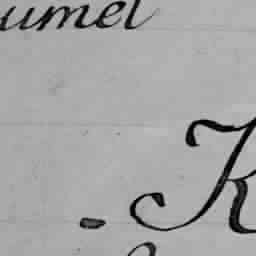 umel
- K